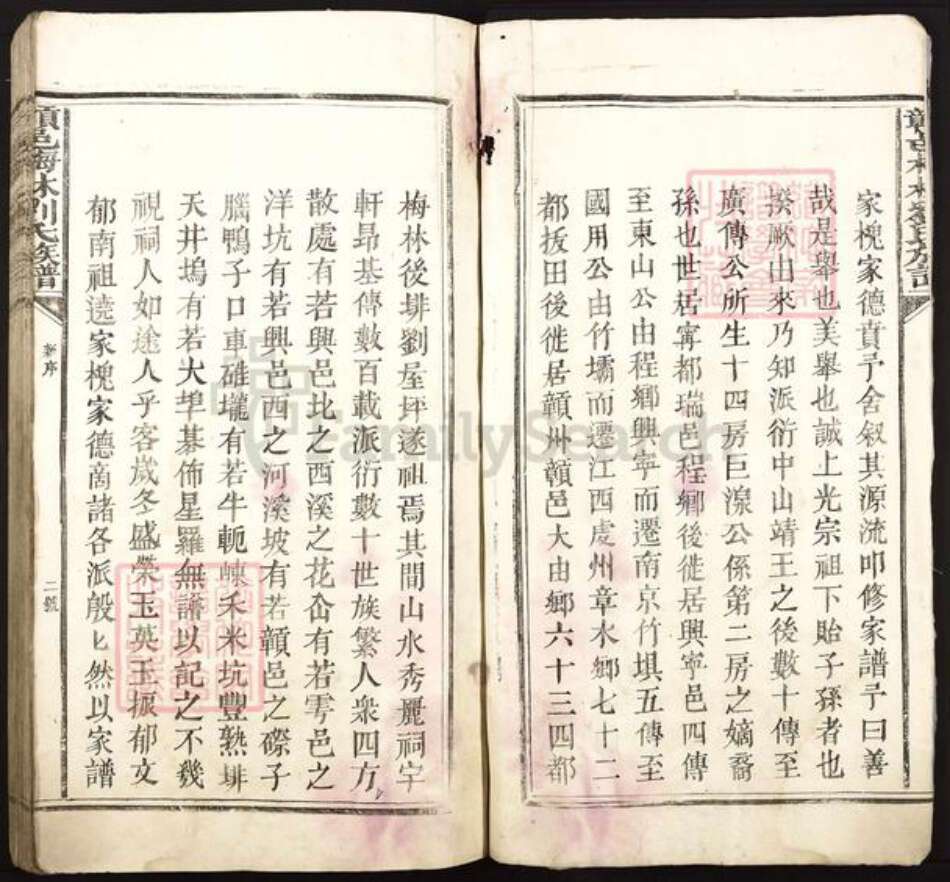 家槐家德賁予舍敘其源流叩修家譜予曰善
哉是舉也美舉也誠上光宗祖下貽子孫者也
揆厥由來乃知派衍中山靖王之後數十傳至
廣傳公所生十四房巨湶公係第二房之嫡裔
孫也世居寧都瑞邑程鄉後徙居興寧邑四傳
至東山公由程鄉興寧而遷南京竹埧五傳至
國用公由竹壩而遷江西虔州章水鄉七十二
都扳田後徙居贛州贛邑大由鄉六十三四都
贛邑梅林劉氏族譜
新序
二號
梅林後排劉屋坪遂祖焉其間山水秀麗祠宇
軒昂基傳數百載派衍數十世族繁人衆四方
散處有若興邑北之西溪之花㕣有若雩邑之
洋坑有若興邑西之河溪坡有若贛邑之磜子
腦鴨子口車碓壠有若牛軛崠禾米坑豐熟排
天井塢有若大埠棊佈星羅無譜以記之不幾
視祠人如途人乎客歲冬盛榮玉英玉振郁文
郁南祖遶家槐家德啇諸各派殷匕然以家譜
FamilySearch